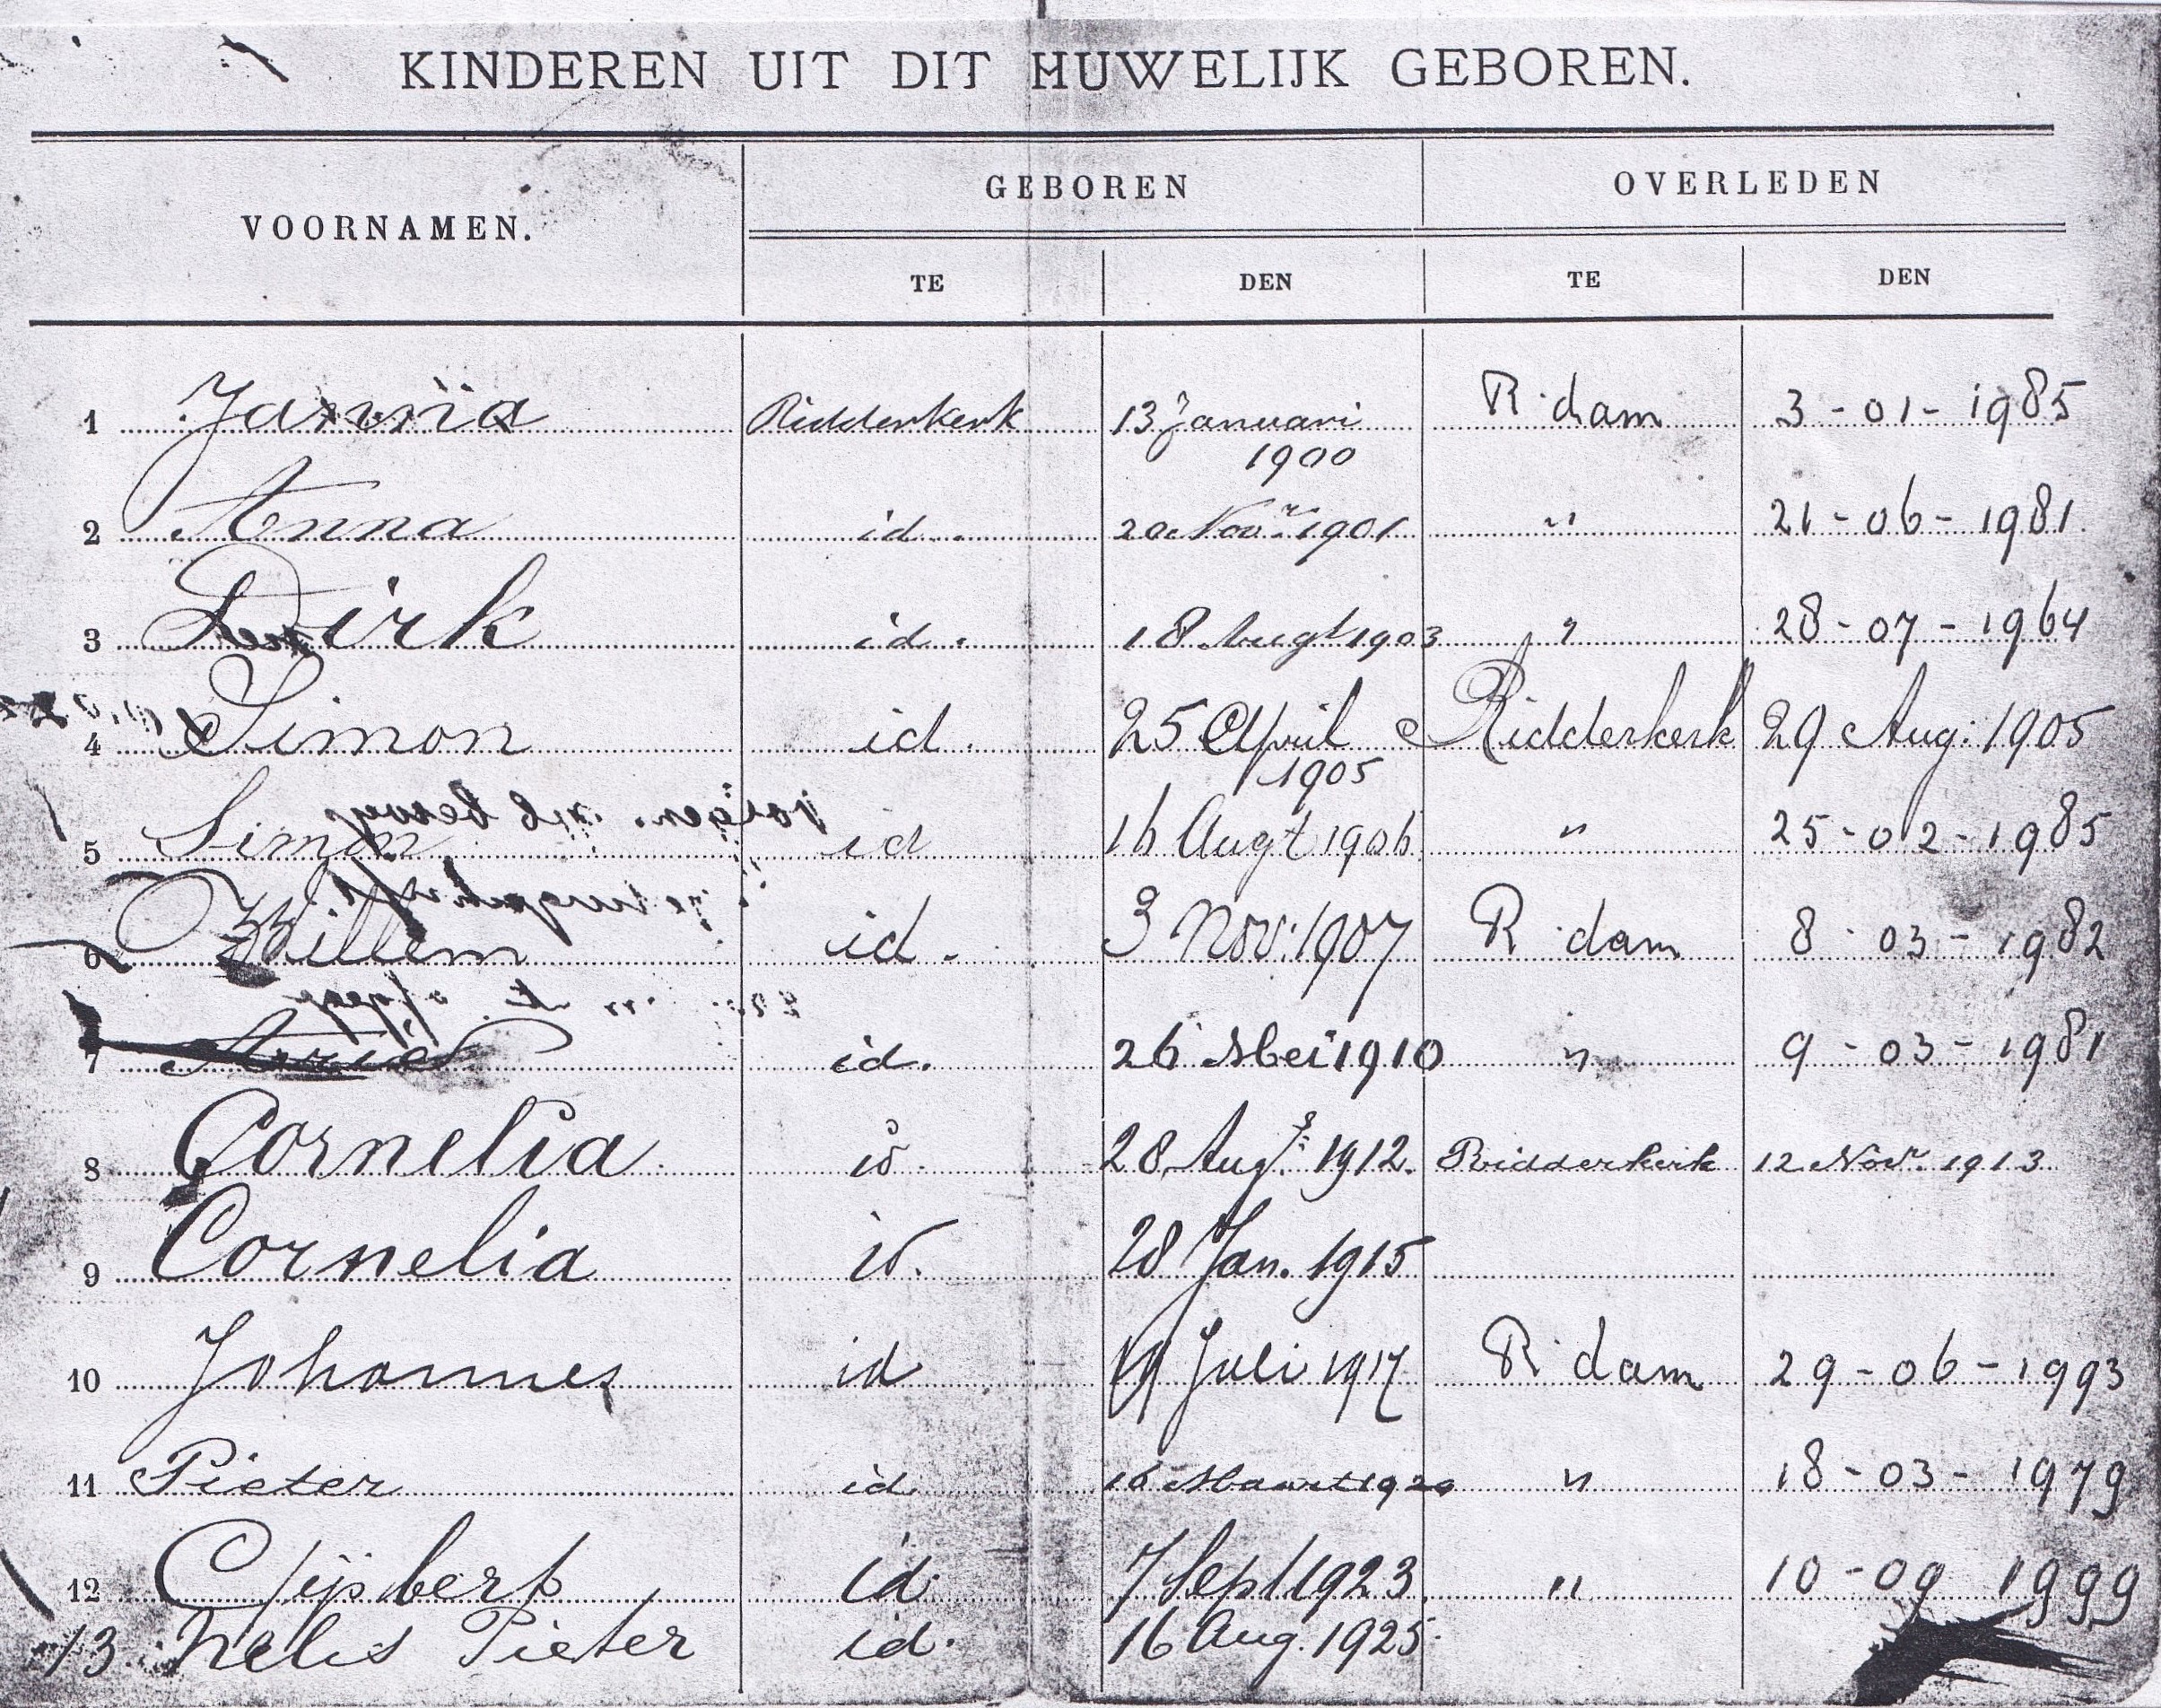 KINDEREN UIT DIT HUWELIJK GEBOREN.
VOORNAMEN. GEBOREN OVERLEDEN
TE DEN TE DEN
1 Jannia Ridderkerk 13 Januari 1900 R.dam 3-01-1985
2 Anna id. 20 Nov.r 1901 " 21-06-1981.
3 Dirk id. 18 Augt 1903 " 28-07-1964
4 Simon id. 25 April 1905 Ridderkerk 29 Aug: 1905
5 Simon id 16 Augt 1906 " 25-02-1985
6 Willem id. 3 Nov: 1907 R.dam 8-03-1982
7 Arie id. 26 Mei 1910 " 9-03-1981
8 Cornelia id. 28 Augs. 1912. Ridderkerk 12 Nov.r 1913
9 Cornelia id. 28 Jan. 1915
10 Johannes id 19 Juli 1917 R.dam 29-06-1993
11 Pieter id. 16 Maart 1920 " 18-03-1979
12 Gijsbert id. 7 Sept 1923 " 10-09 1999
13. Nelis Pieter id. 16 Aug. 1925.